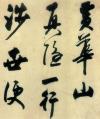 黄華山
真隐一行
涉世便